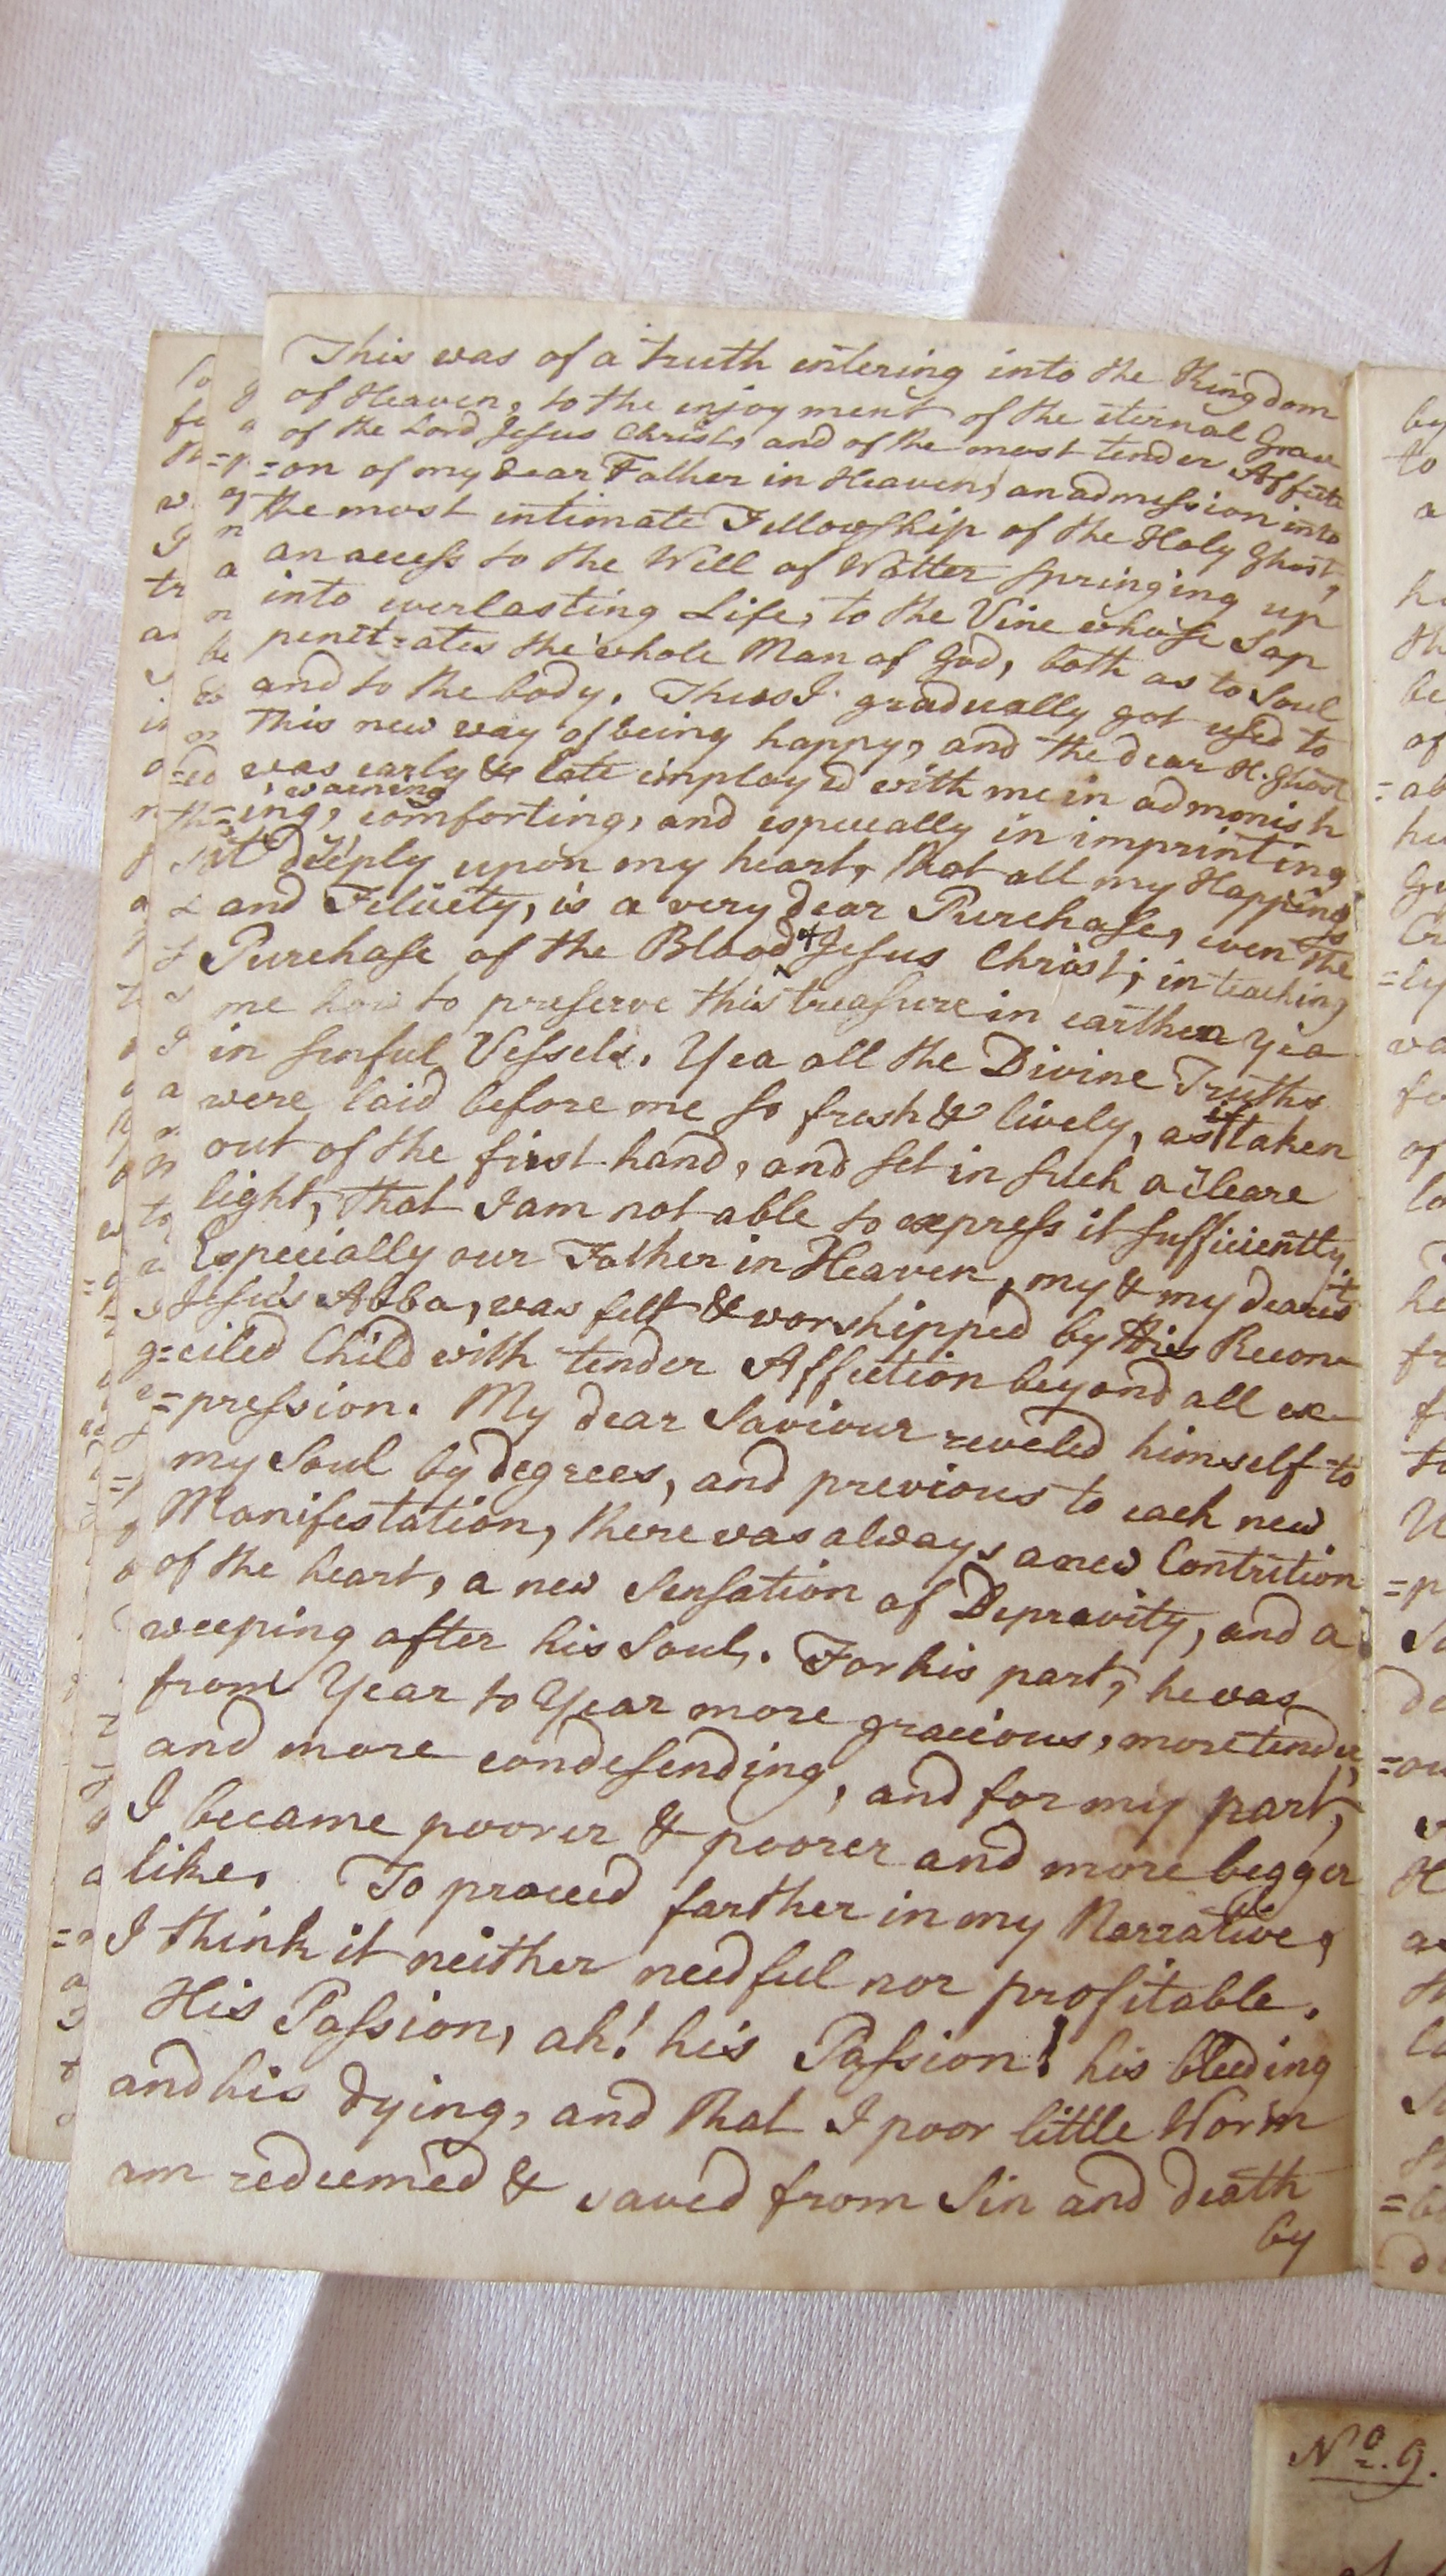 This was of a truth entering into the Kingdom
of Heaven, to the enjoyment of the eternal Grace
of the Lord Jesus Christ, and of the most tender Affecti
=on of my dear Father in Heaven, an admission into
the most intimate Fellowship of the Holy Ghost,
an access to the Well of Watter springing up
into everlasting Life, to the Vine whose Sap
penetrates the whole Man of God, both as to Soul
and to the body. Thus I gradually got used to
this new way of being happy, and the dear H. Ghost
was early & late imployed with me in admonish
, warning
=ing, comforting, and especially in imprinting
it deeply upon my heart, that all my Happiness
and Felicity, is a very dear Purchase, even the
Purchase of the Blood of Jesus Christ; in teaching
me how to preserve this treasure in earthen yea
in sinful Vessels. Yea all the Divine Truths
were laid before me so fresh & lively, as if taken
out of the first hand, and set in such a cleare
light, that I am not able to express it sufficiently.
Especially our Father in Heaven, my & my dearest
Jesu's Abba, was felt & worshipped by this Recon
=ciled Child with tender Affection beyond all ex
=pression. My dear Saviour reveled himself to
my Soul by degrees, and previous to each new
Manifestation, there was always a new Contrition
of the heart, a new Sensation of Depravity, and a
weeping after his Soul. For his part, he was
from Year to Year more gracious, more tender,
and more condesending, and for my part,
I became poorer & poorer and more begger
like. To proceed farther in my Narrative,
I think it neither needful nor profitable.
His Passion, ah! his Passion! his bleeding
and his dying, and that I poor little Worm
am redeemed & saved from Sin and death
by
by
to
a
No. 9.